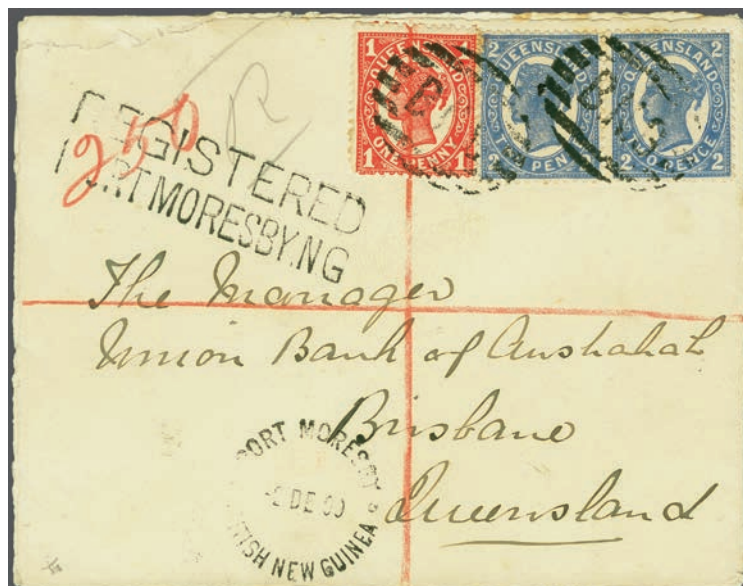 1 QUEENSLAND 1
1 ONE PENNY 1
2 QUEENSLAND 2
2 TWO PENCE
2 QUEENSLAND 2
2 TWO PENCE 2
R
250
REGISTERED
PORT MORESBY.NG
The Manager
Union Bank of Australia
Brisbane
Queensland
PORT MORESBY
DE
BRITISH NEW GUINEA